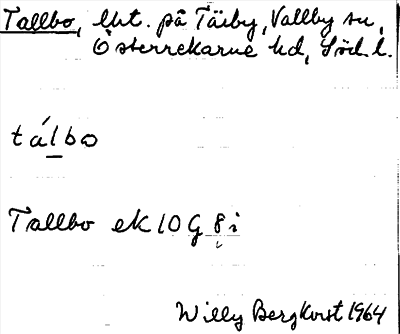 Tallbo, lht. på Täby, Vallby sn,
Österrekarne hd, Söd. l.
tálbo
Tallbo ek 10 G 8 i
Willy Bergkvist 1964